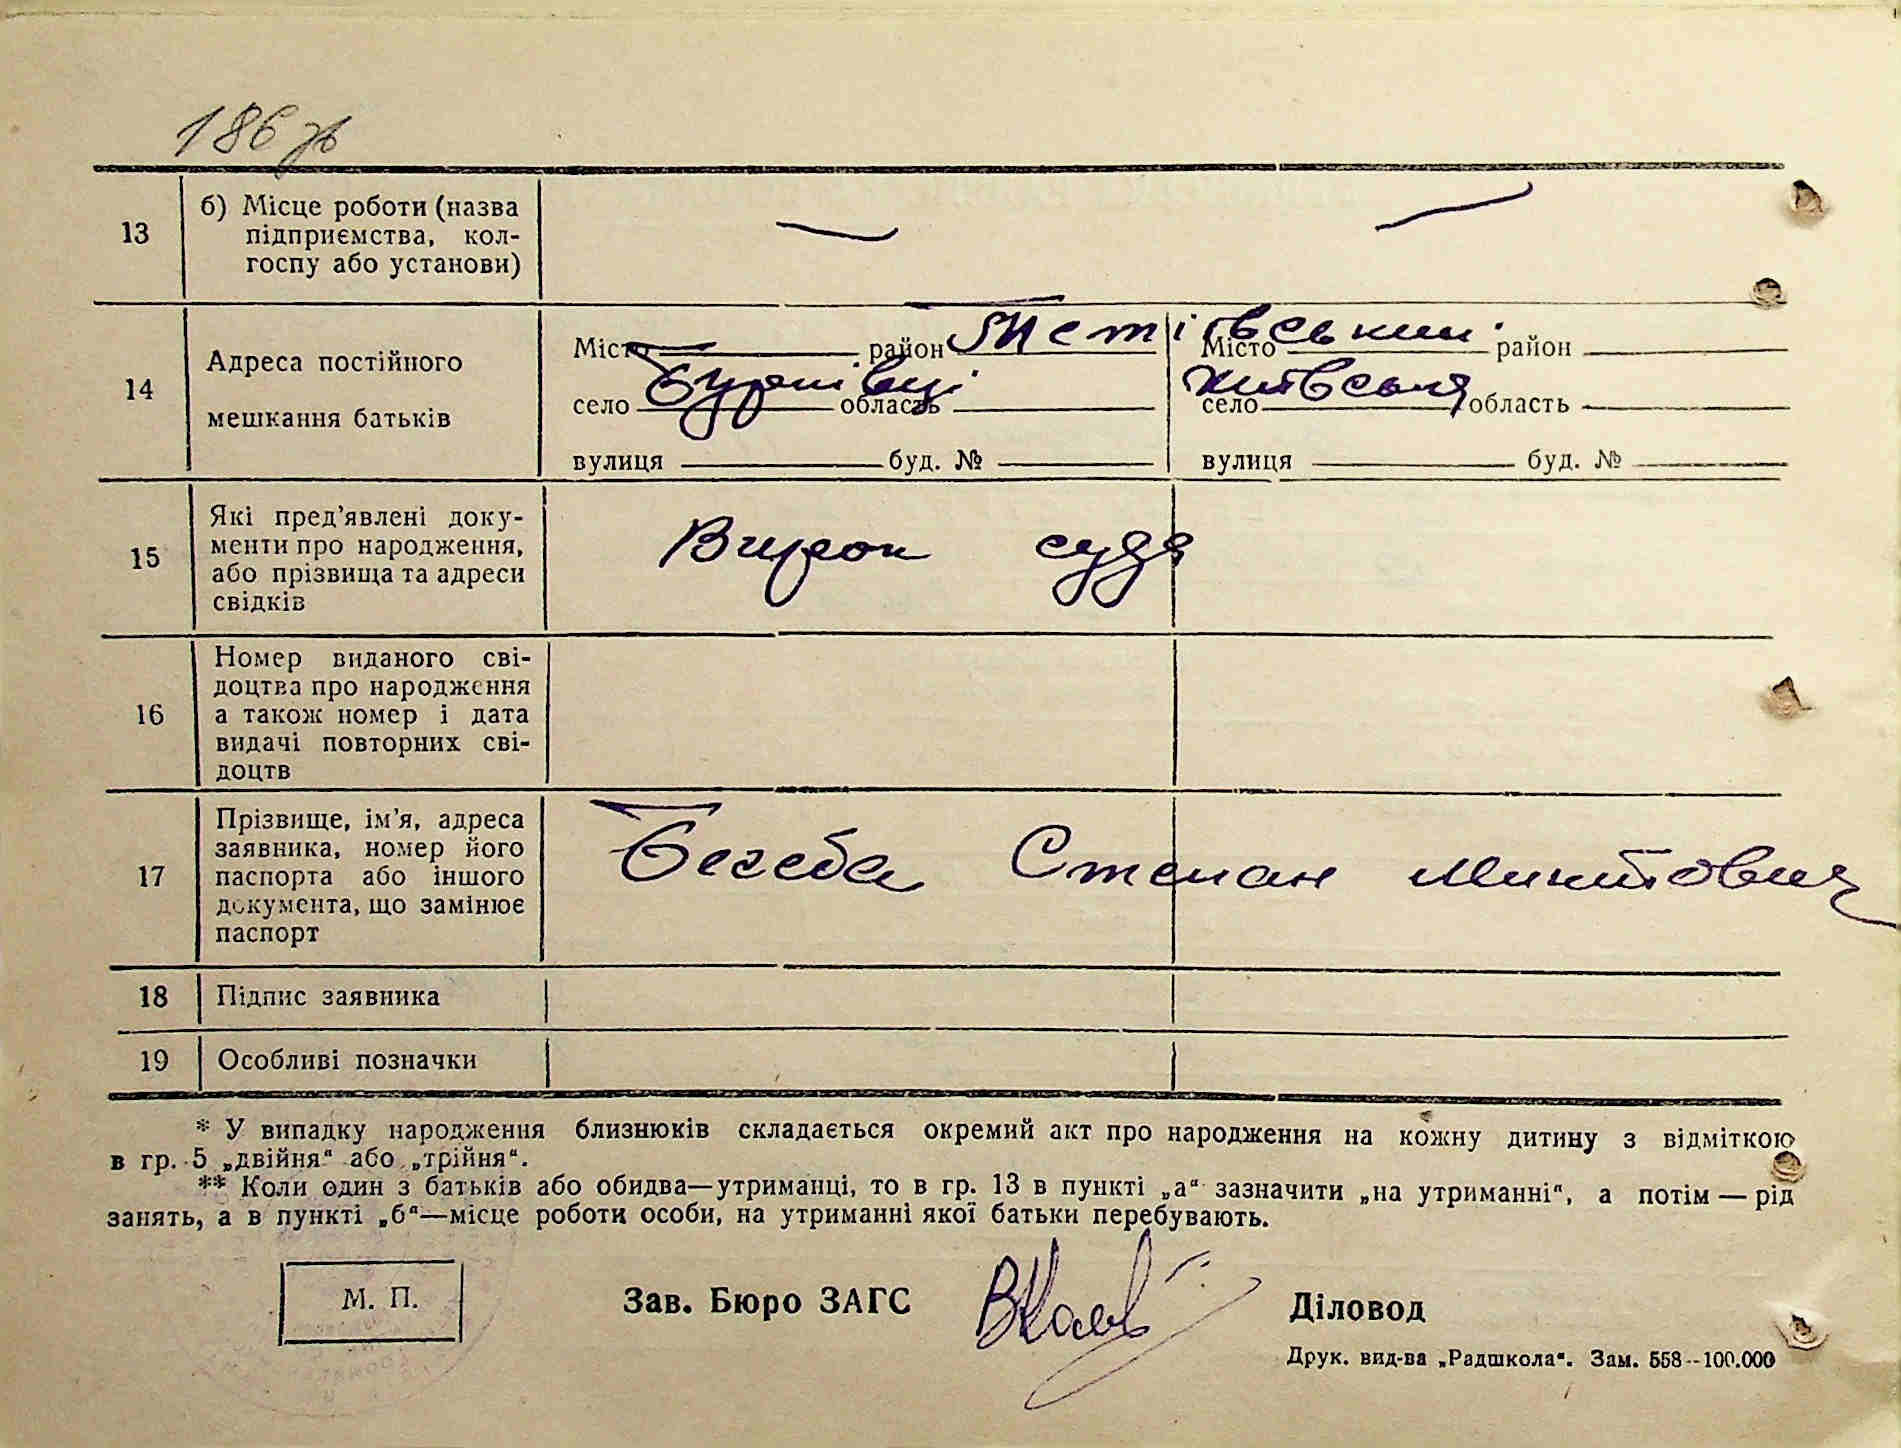 186 зв
13
б) Місце роботи (назва
підприємства, кол-
госпу або установи)
14
Адреса постійного
мешкання батьків
Місто район Тетіївський Місто район
село Бурківці область Київська село область
вулиця буд. № вулиця буд. №
15
Які пред'явлені доку-
менти про народження,
або прізвища та адреси
свідків
Вирок суда
16
Номер виданого сві-
доцтва про народження
а також номер і дата
видачі повторних сві-
доцтв
17
Прізвище, ім'я, адреса
заявника, номер його
паспорта або іншого
документа, що замінює
паспорт
Степан Микитович
18 Підпис заявника
19 Особливі позначки
* У випадку народження близнюків складається окремий акт про народження на кожну дитину з відміткою
в гр. 5 „двійня“ або „трійня“.
** Коли один з батьків або обидва—утриманці, то в гр. 13 в пункті „а“ зазначити „на утриманні“, а потім — рід
занять, а в пункті „б“—місце роботи особи, на утриманні якої батьки перебувають.
М. П.
Зав. Бюро ЗАГС
Діловод
Друк. вид-ва „Радшкола“. Зам. 558--100.000